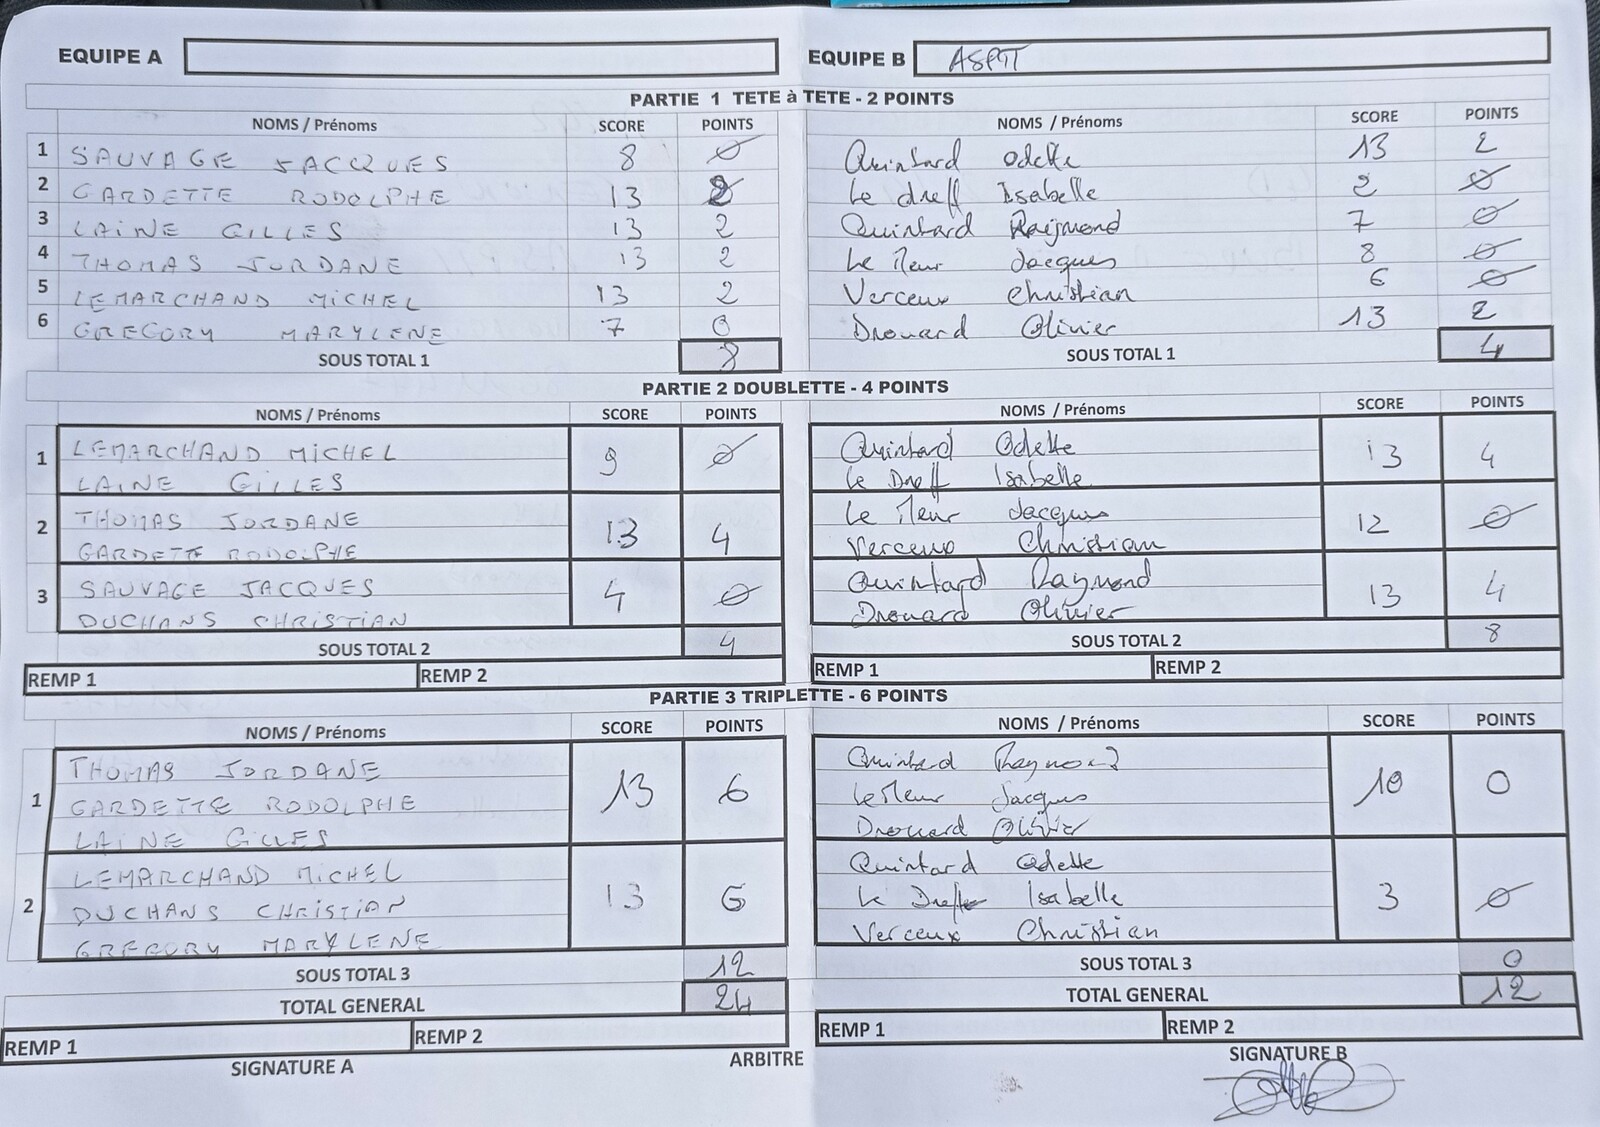 EQUIPE A
EQUIPE B ASPTT
PARTIE 1 TETE à TETE - 2 POINTS
NOMS / Prénoms SCORE POINTS NOMS / Prénoms SCORE POINTS
1 SAUVAGE JACQUES 8 0 Quintard Odette 13 2
2 GARDETTE RODOLPHE 13 2 Le dreff Isabelle 2 0
3 LAINE GILLES 13 2 Quintard Raymond 7 0
4 THOMAS JORDANE 13 2 Le Meur Jacques 8 0
5 LEMARCHAND MICHEL 13 2 Verceux Christian 6 0
6 GREGORY MARYLENE 7 0 Drouard Olivier 13 2
SOUS TOTAL 1 8 SOUS TOTAL 1 4
PARTIE 2 DOUBLETTE - 4 POINTS
NOMS / Prénoms SCORE POINTS NOMS / Prénoms SCORE POINTS
1 LEMARCHAND MICHEL 9 0 Quintard Odette 13 4
LAINE GILLES Le Dreff Isabelle
2 THOMAS JORDANE 13 4 Le Meur Jacques 12 0
GARDETTE RODOLPHE Verceux Christian
3 SAUVAGE JACQUES 4 0 Quintard Raymond 13 4
DUCHANS CHRISTIAN Drouard Olivier
SOUS TOTAL 2 4 SOUS TOTAL 2 8
REMP 1 REMP 2 REMP 1 REMP 2
PARTIE 3 TRIPLETTE - 6 POINTS
NOMS / Prénoms SCORE POINTS NOMS / Prénoms SCORE POINTS
1 THOMAS JORDANE 13 6 Quintard Raymond 10 0
GARDETTE RODOLPHE Le Meur Jacques
LAINE GILLES Drouard Olivier
2 LEMARCHAND MICHEL 13 6 Quintard Odette 3 0
DUCHANS CHRISTIAN Le Dreff Isabelle
GREGORY MARYLENE Verceux Christian
SOUS TOTAL 3 12 SOUS TOTAL 3 0
TOTAL GENERAL 24 TOTAL GENERAL 12
REMP 1 REMP 2 REMP 1 REMP 2
SIGNATURE A ARBITRE SIGNATURE B